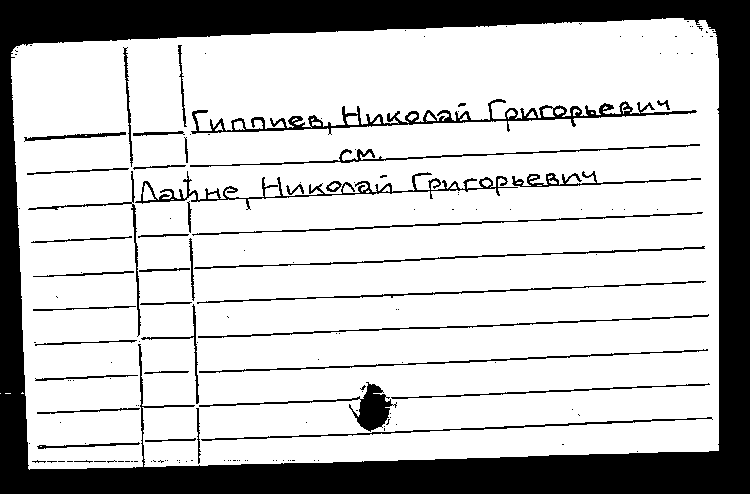 Гиппиев, Николай Григорьевич
см.
Лайне, Николай Григорьевич